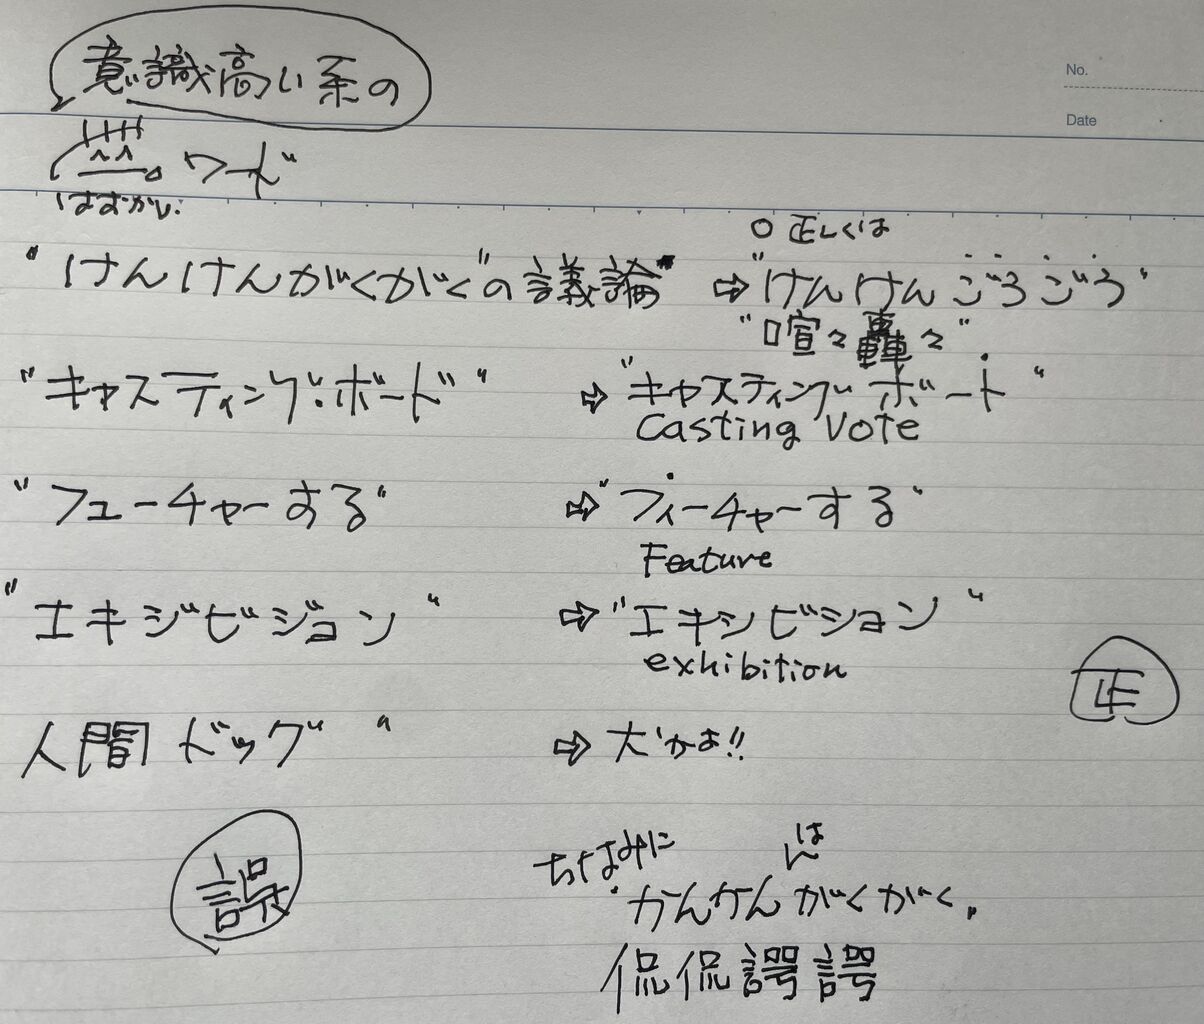 意識高い系の
No.
Date
ワード
はずかし
"けんけんがくがく"の議論" ⇨ "けんけんごうごう"
○ 正しくは
"喧々轟々"
"キャスティング・ボード" ⇨ "キャスティングボート"
Casting Vote
"フューチャーする" ⇨ "フィーチャーする"
Feature
"エキジビジョン" ⇨ "エキシビション"
exhibition
正
人間ドッグ" ⇨ 犬かよ!!
誤
ちなみに
は
"かんかんがくがく"
侃侃諤諤